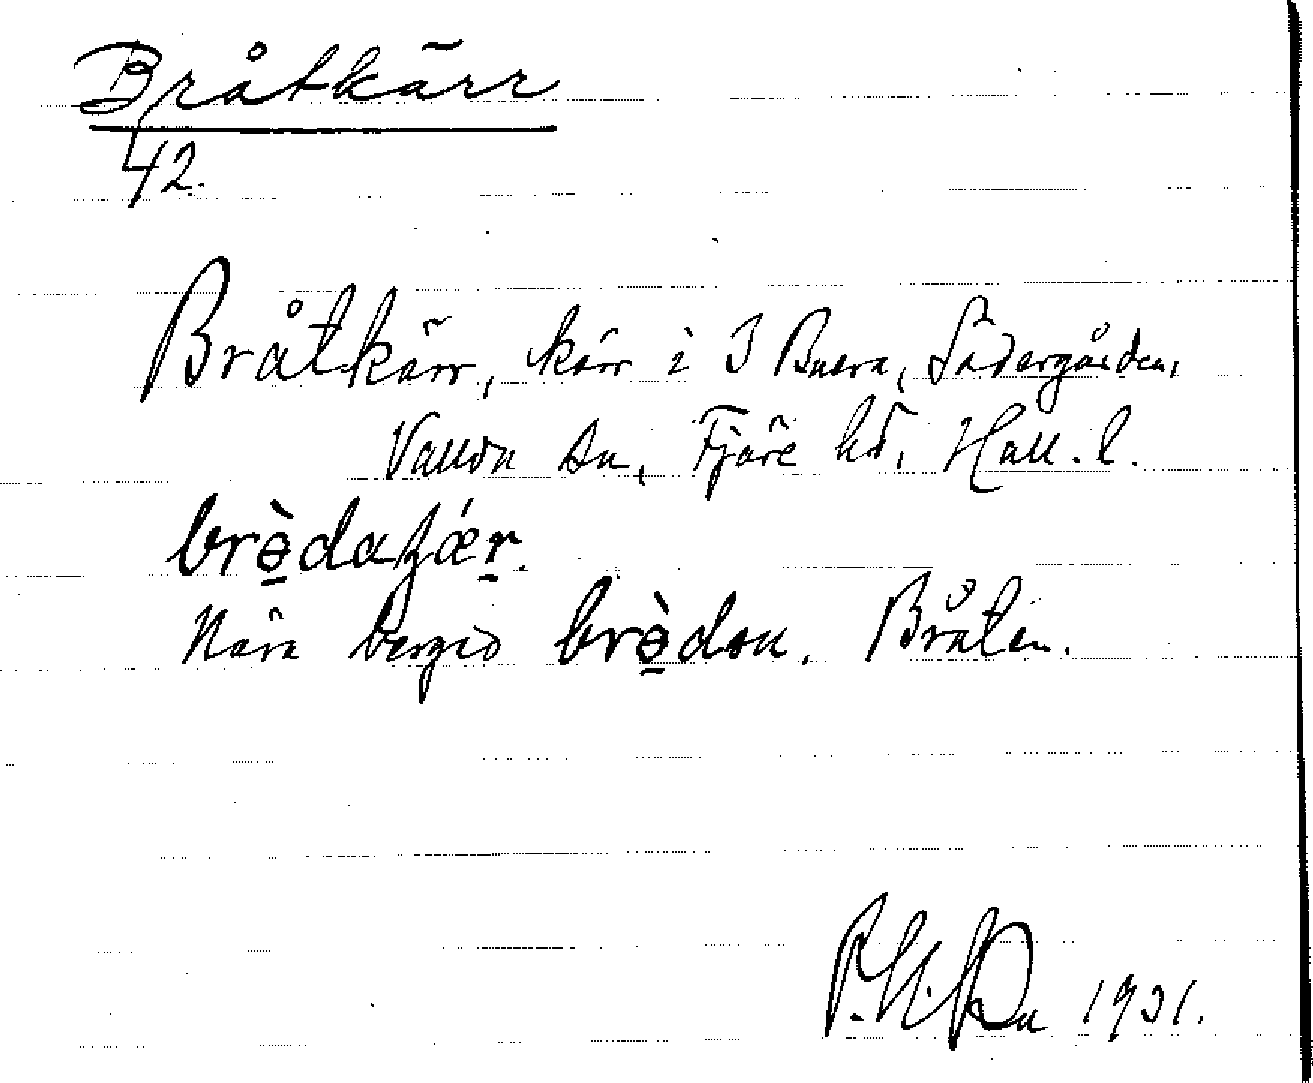 Bråtkärr
42.
Bråtkärr, kärr i 3 Buera, Södergården,
Vallda sn, Fjäre hd, Hall. l.
brèdaȥǽr.
Nära berget brèdən. Bråten.
1931.